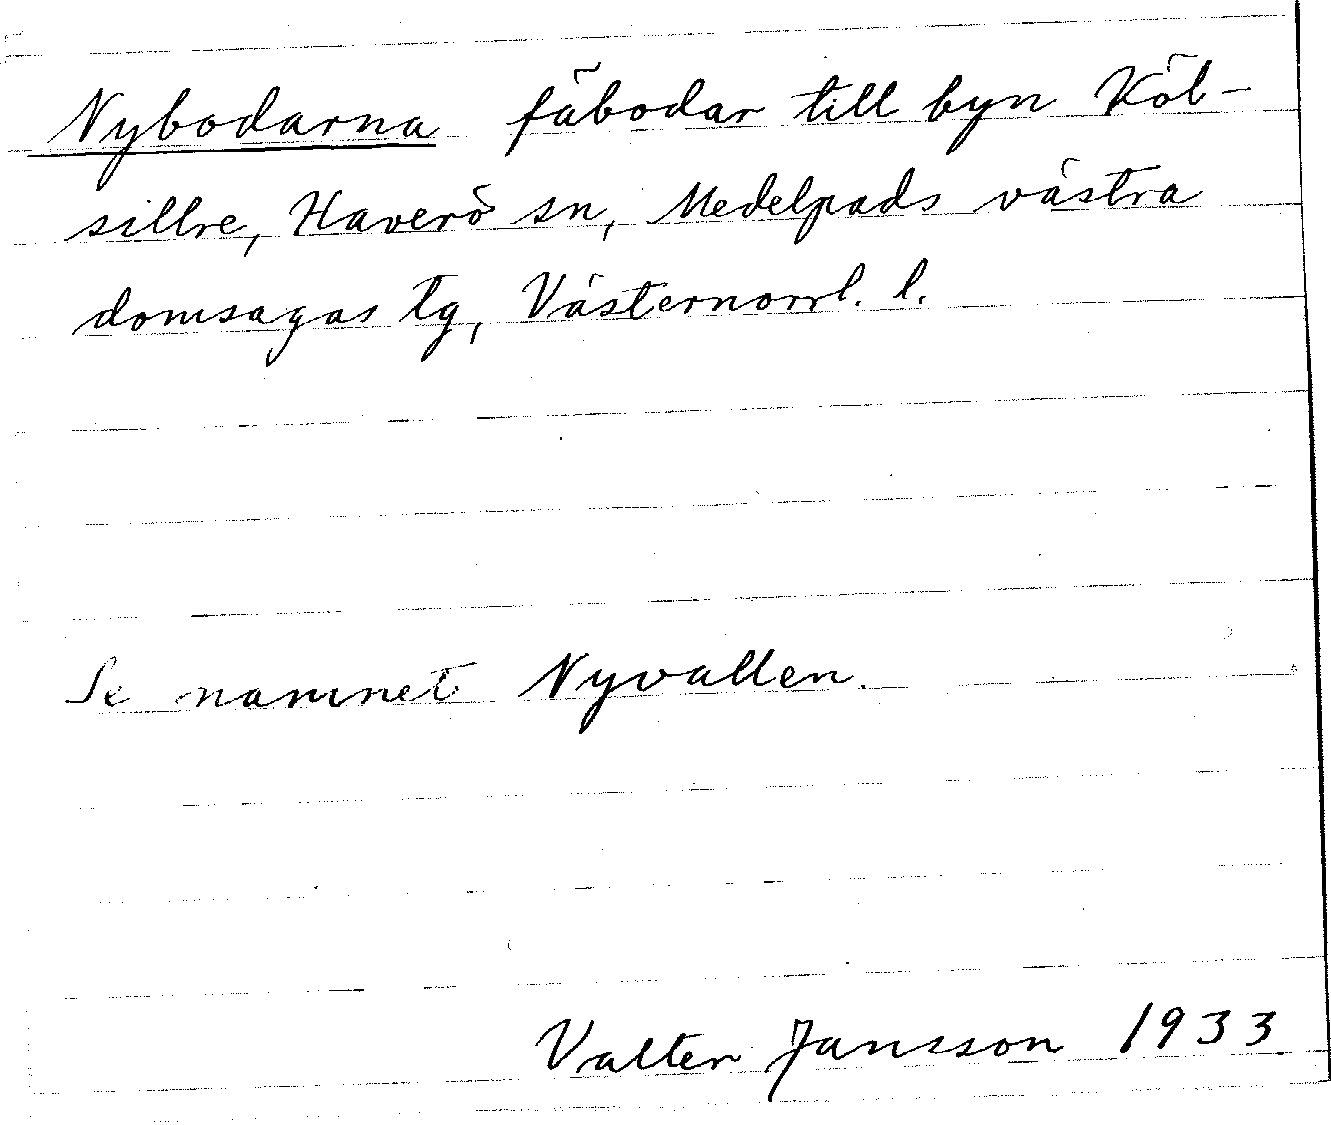 Nybodarna fäbodar till byn Köl-
sillre, Haverö sn, Medelpads västra
domsagas tg, Västernorrl. l.
Se namnet Nyvallen.
Valter Jansson 1933